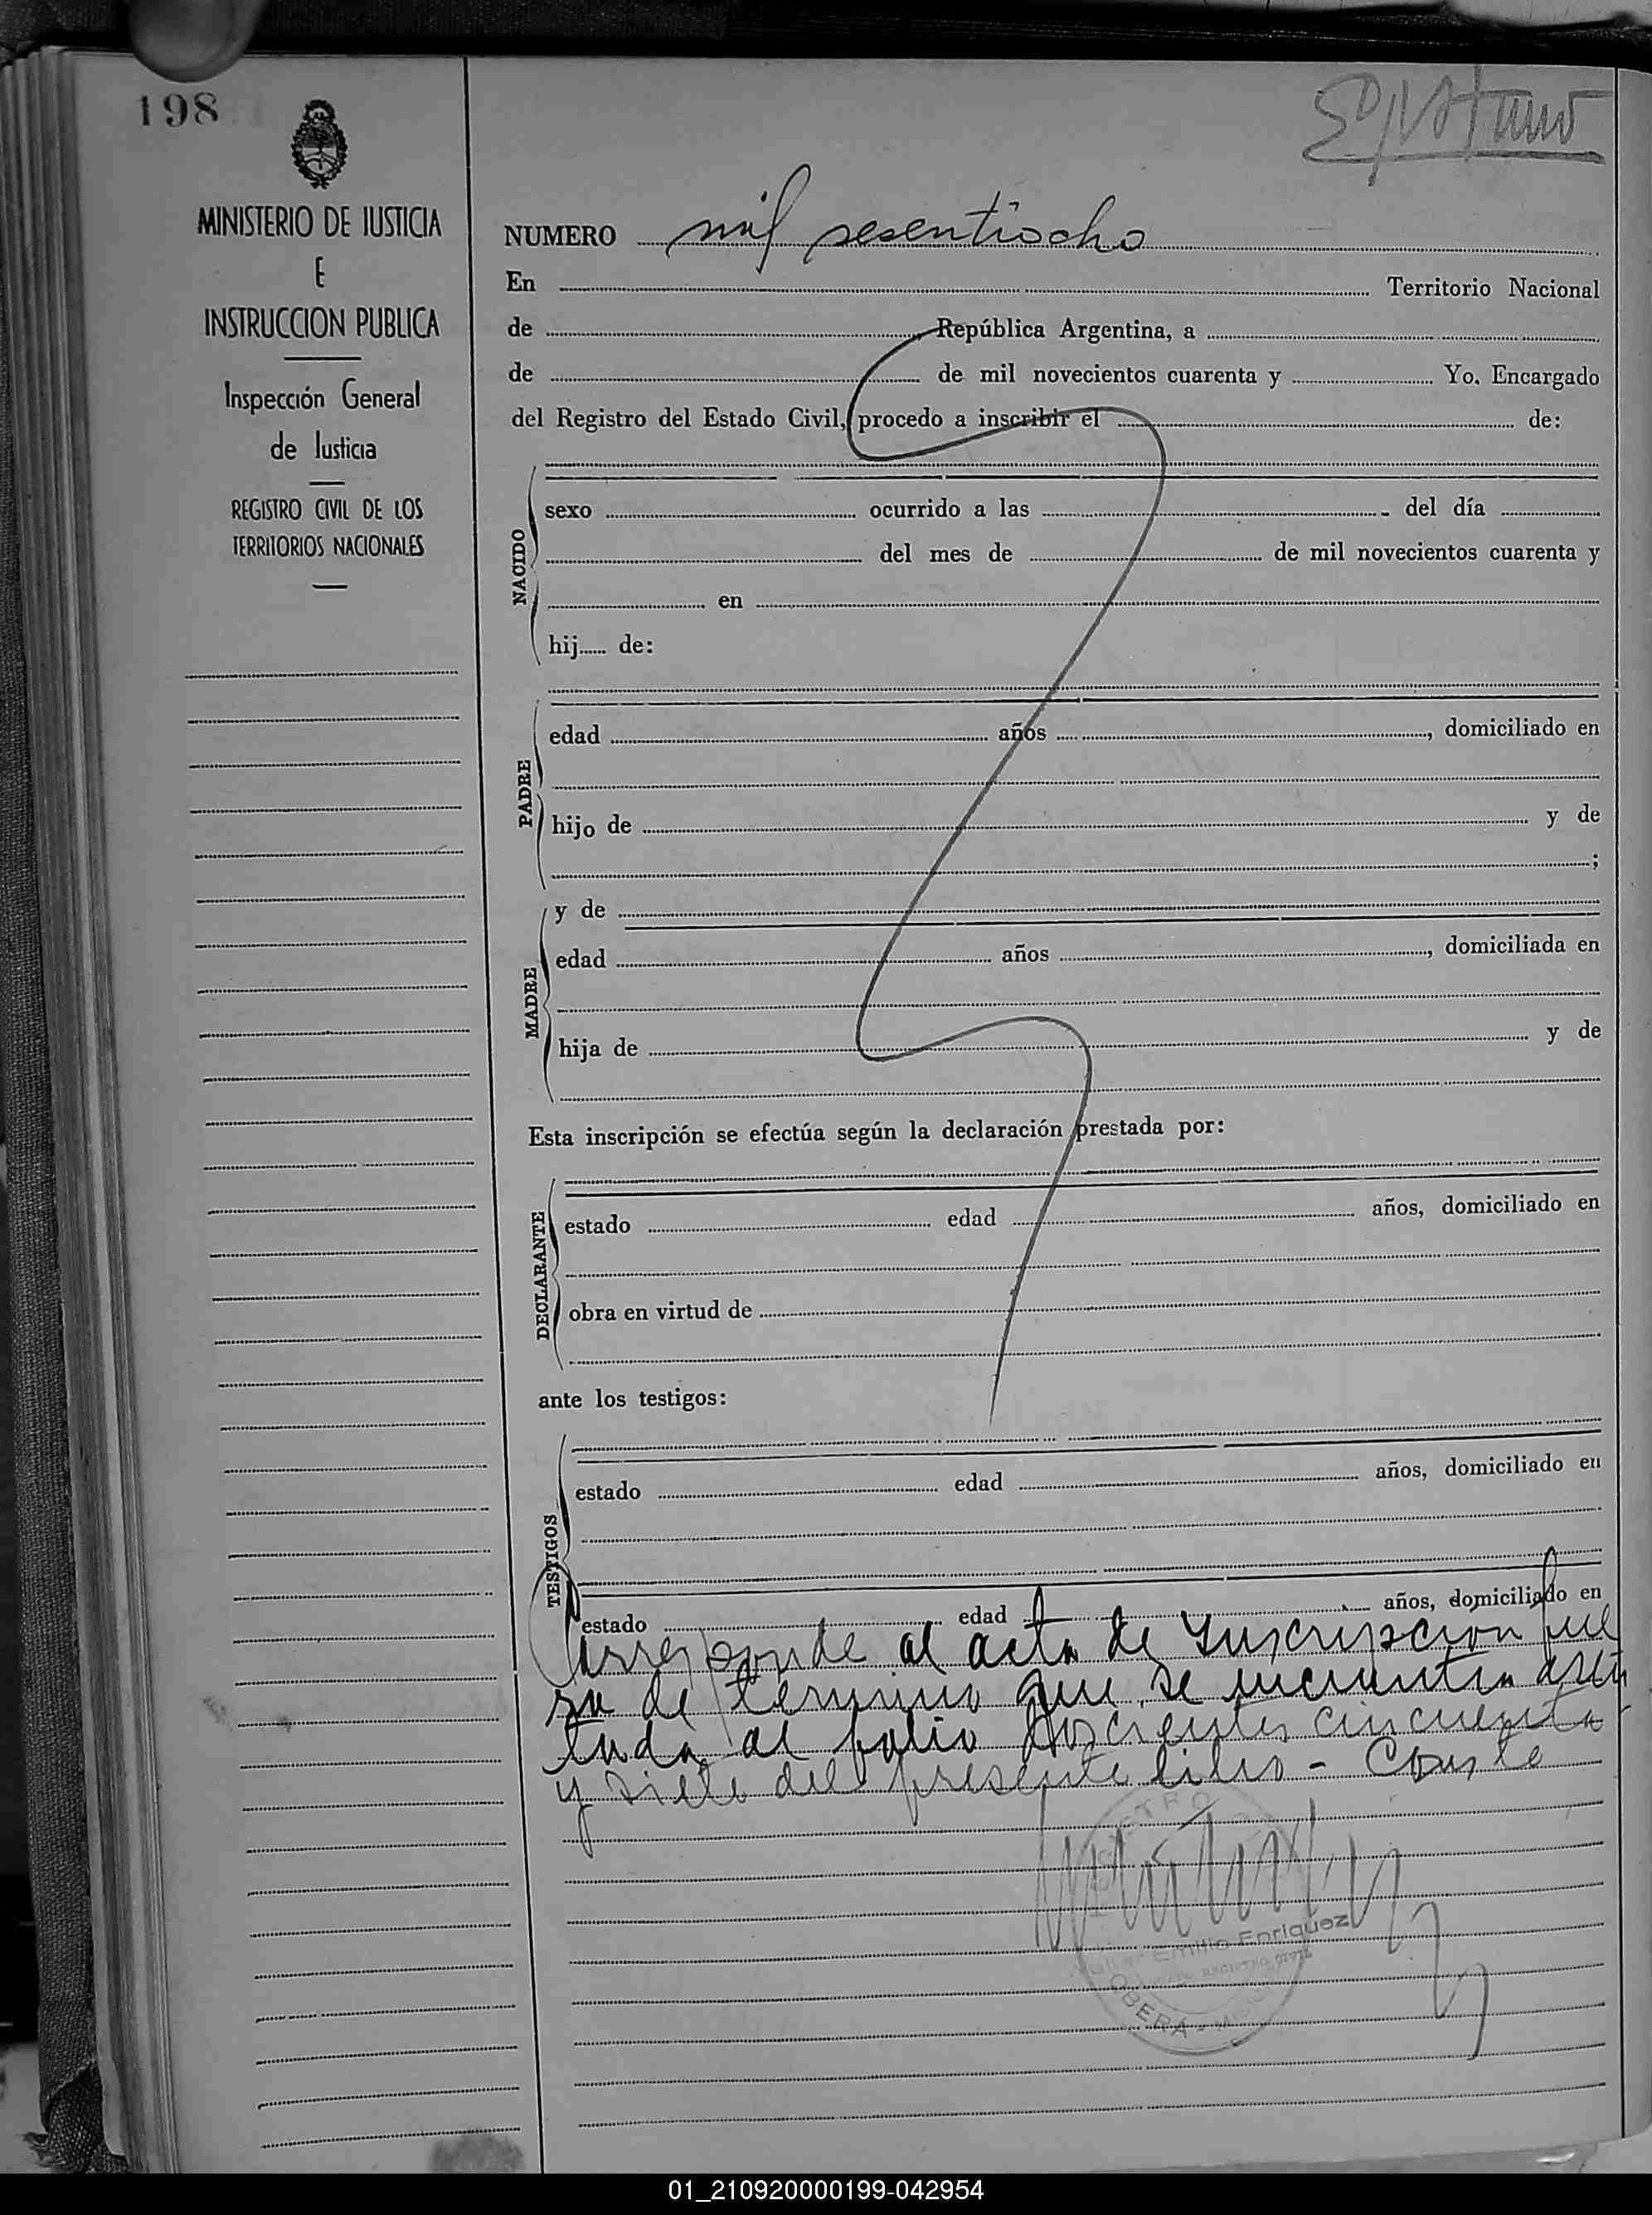 198
MINISTERIO DE JUSTICIA
E
INSTRUCCION PUBLICA
Inspección General
de Justicia
REGISTRO CIVIL DE LOS
TERRITORIOS NACIONALES
NUMERO mil sesentiocho
En Territorio Nacional
de República Argentina, a
de de mil novecientos cuarenta y Yo. Encargado
del Registro del Estado Civil, procedo a inscribir el de:
NACIDO
sexo ocurrido a las del día
del mes de de mil novecientos cuarenta y
en
hij...... de:
PADRE
edad años , domiciliado en
hijo de y de
;
MADRE
y de
edad años , domiciliada en
hija de y de
Esta inscripción se efectúa según la declaración prestada por:
DECLARANTE
estado edad años, domiciliado en
obra en virtud de
ante los testigos:
TESTIGOS
estado edad años, domiciliado en
estado edad años, domiciliado en
Corresponde al acta de Inscripcion fue
ra de termino que se encuentra asen
tada al folio Doscientos cincuenta
y siete del presente libro - Conste
Emilio Enriquez
REGISTRO CIVIL
OBERA
01_210920000199-042954